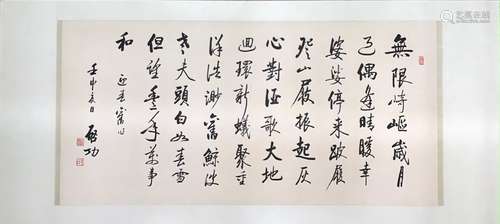 無限崎嶇歲月
過偶逢晴暖幸
婆娑停來跛履
登山屐振起灰
心對酒歌大地
迴環新蟻聚重
洋浩渺舊鯨波
老夫頭白如春雪
但望豐年萬事
和 春舊
壬申夏日 啟功